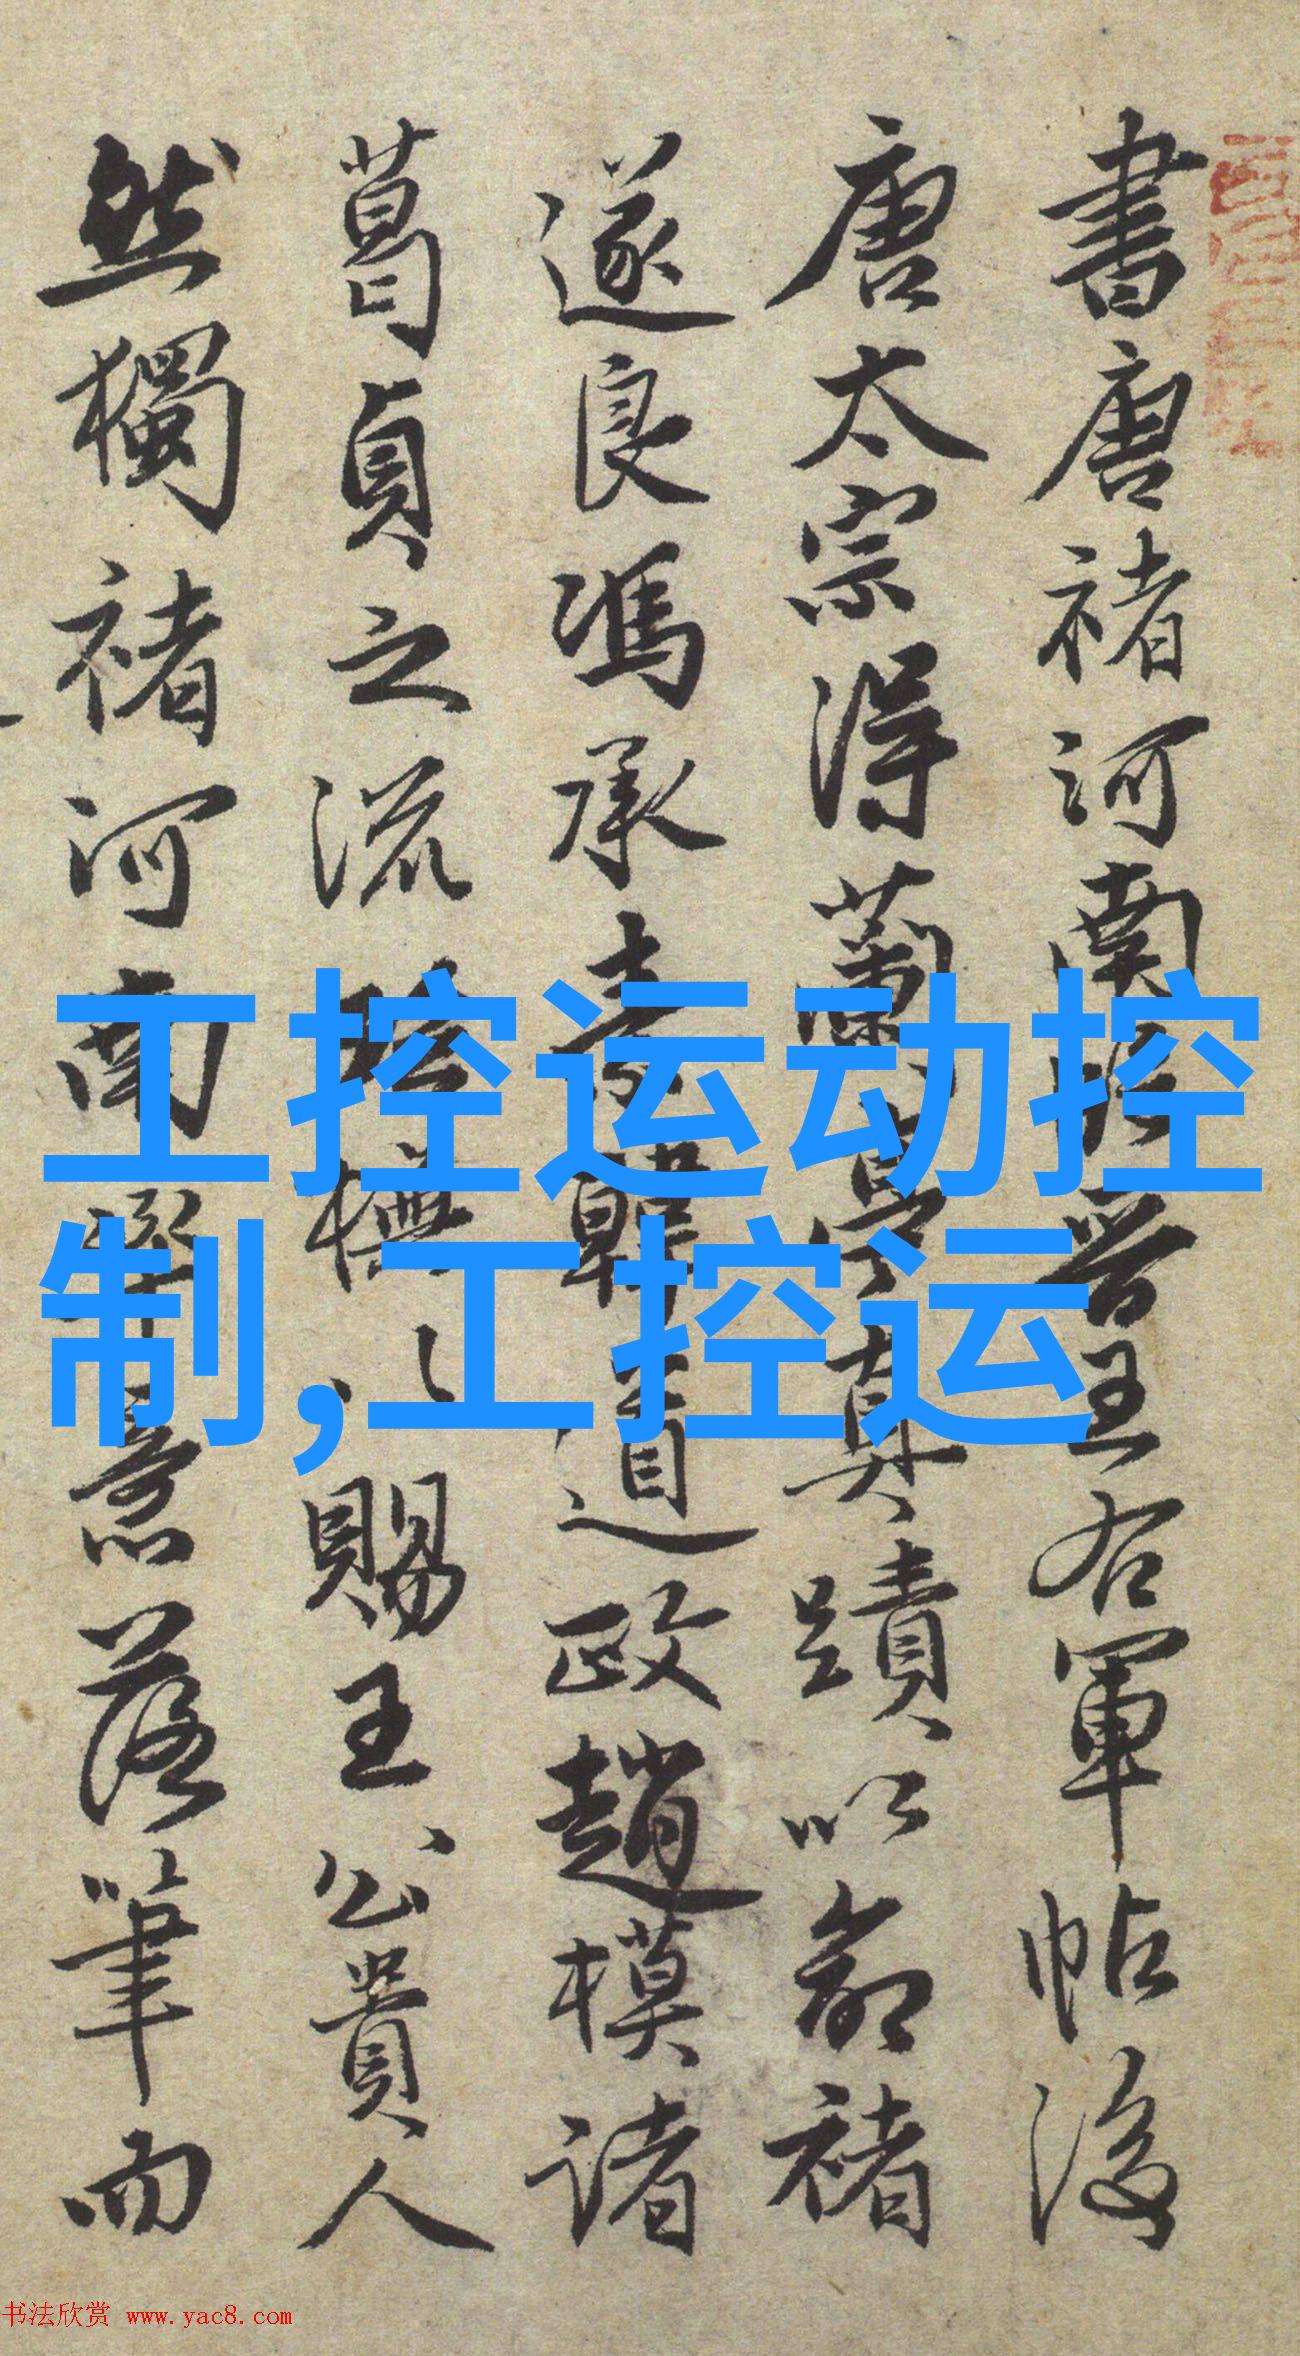 書唐褚河南臨晉王右軍帖後
唐太宗得蘭亭真蹟以命褚
遂良馮承素韓道政趙模諸
葛貞之流臨櫵以賜王公貴人
然獨褚河南擧意落筆而
工控运动控
制,工控运
书法欣赏 www.yac8.com